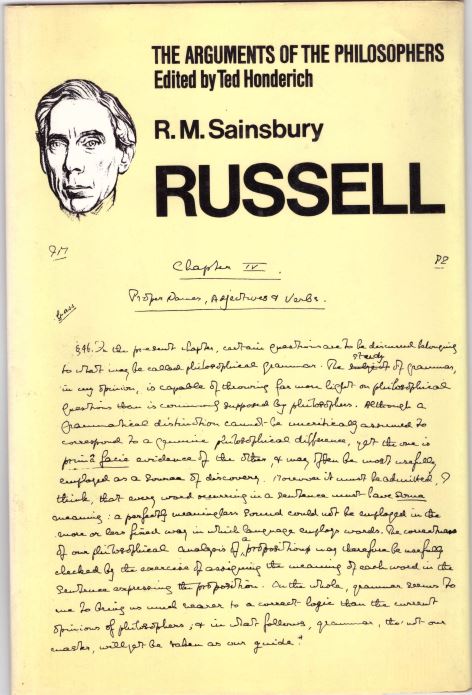 THE ARGUMENTS OF THE PHILOSOPHERS
Edited by Ted Honderich
R. M. Sainsbury
RUSSELL
Chapter IV.
Proper Names, Adjectives & Verbs.
§46. In the present chapter, certain questions are to be discussed belonging
study
to what may be called philosophical grammar. The subject of grammar,
in my opinion, is capable of throwing far more light on philosophical
questions than is commonly supposed by philosophers. Although a
grammatical distinction cannot be uncritically assumed to
correspond to a genuine philosophical difference, yet the one is
primâ facie evidence of the other, & may often be most usefully
employed as a source of discovery. Moreover it must be admitted, I
think, that every word occurring in a sentence must have some
meaning: a perfectly meaningless sound could not be employed in the
more or less fixed way in which language employs words. The correctness
of our philosophical analysis of a proposition may therefore be usefully
checked by the exercise of assigning the meaning of each word in the
sentence expressing the proposition. On the whole, grammar seems to
me to bring us much nearer to a correct logic than the current
opinions of philosophers; & in what follows, grammar, tho' not our
master, will yet be taken as our guide.